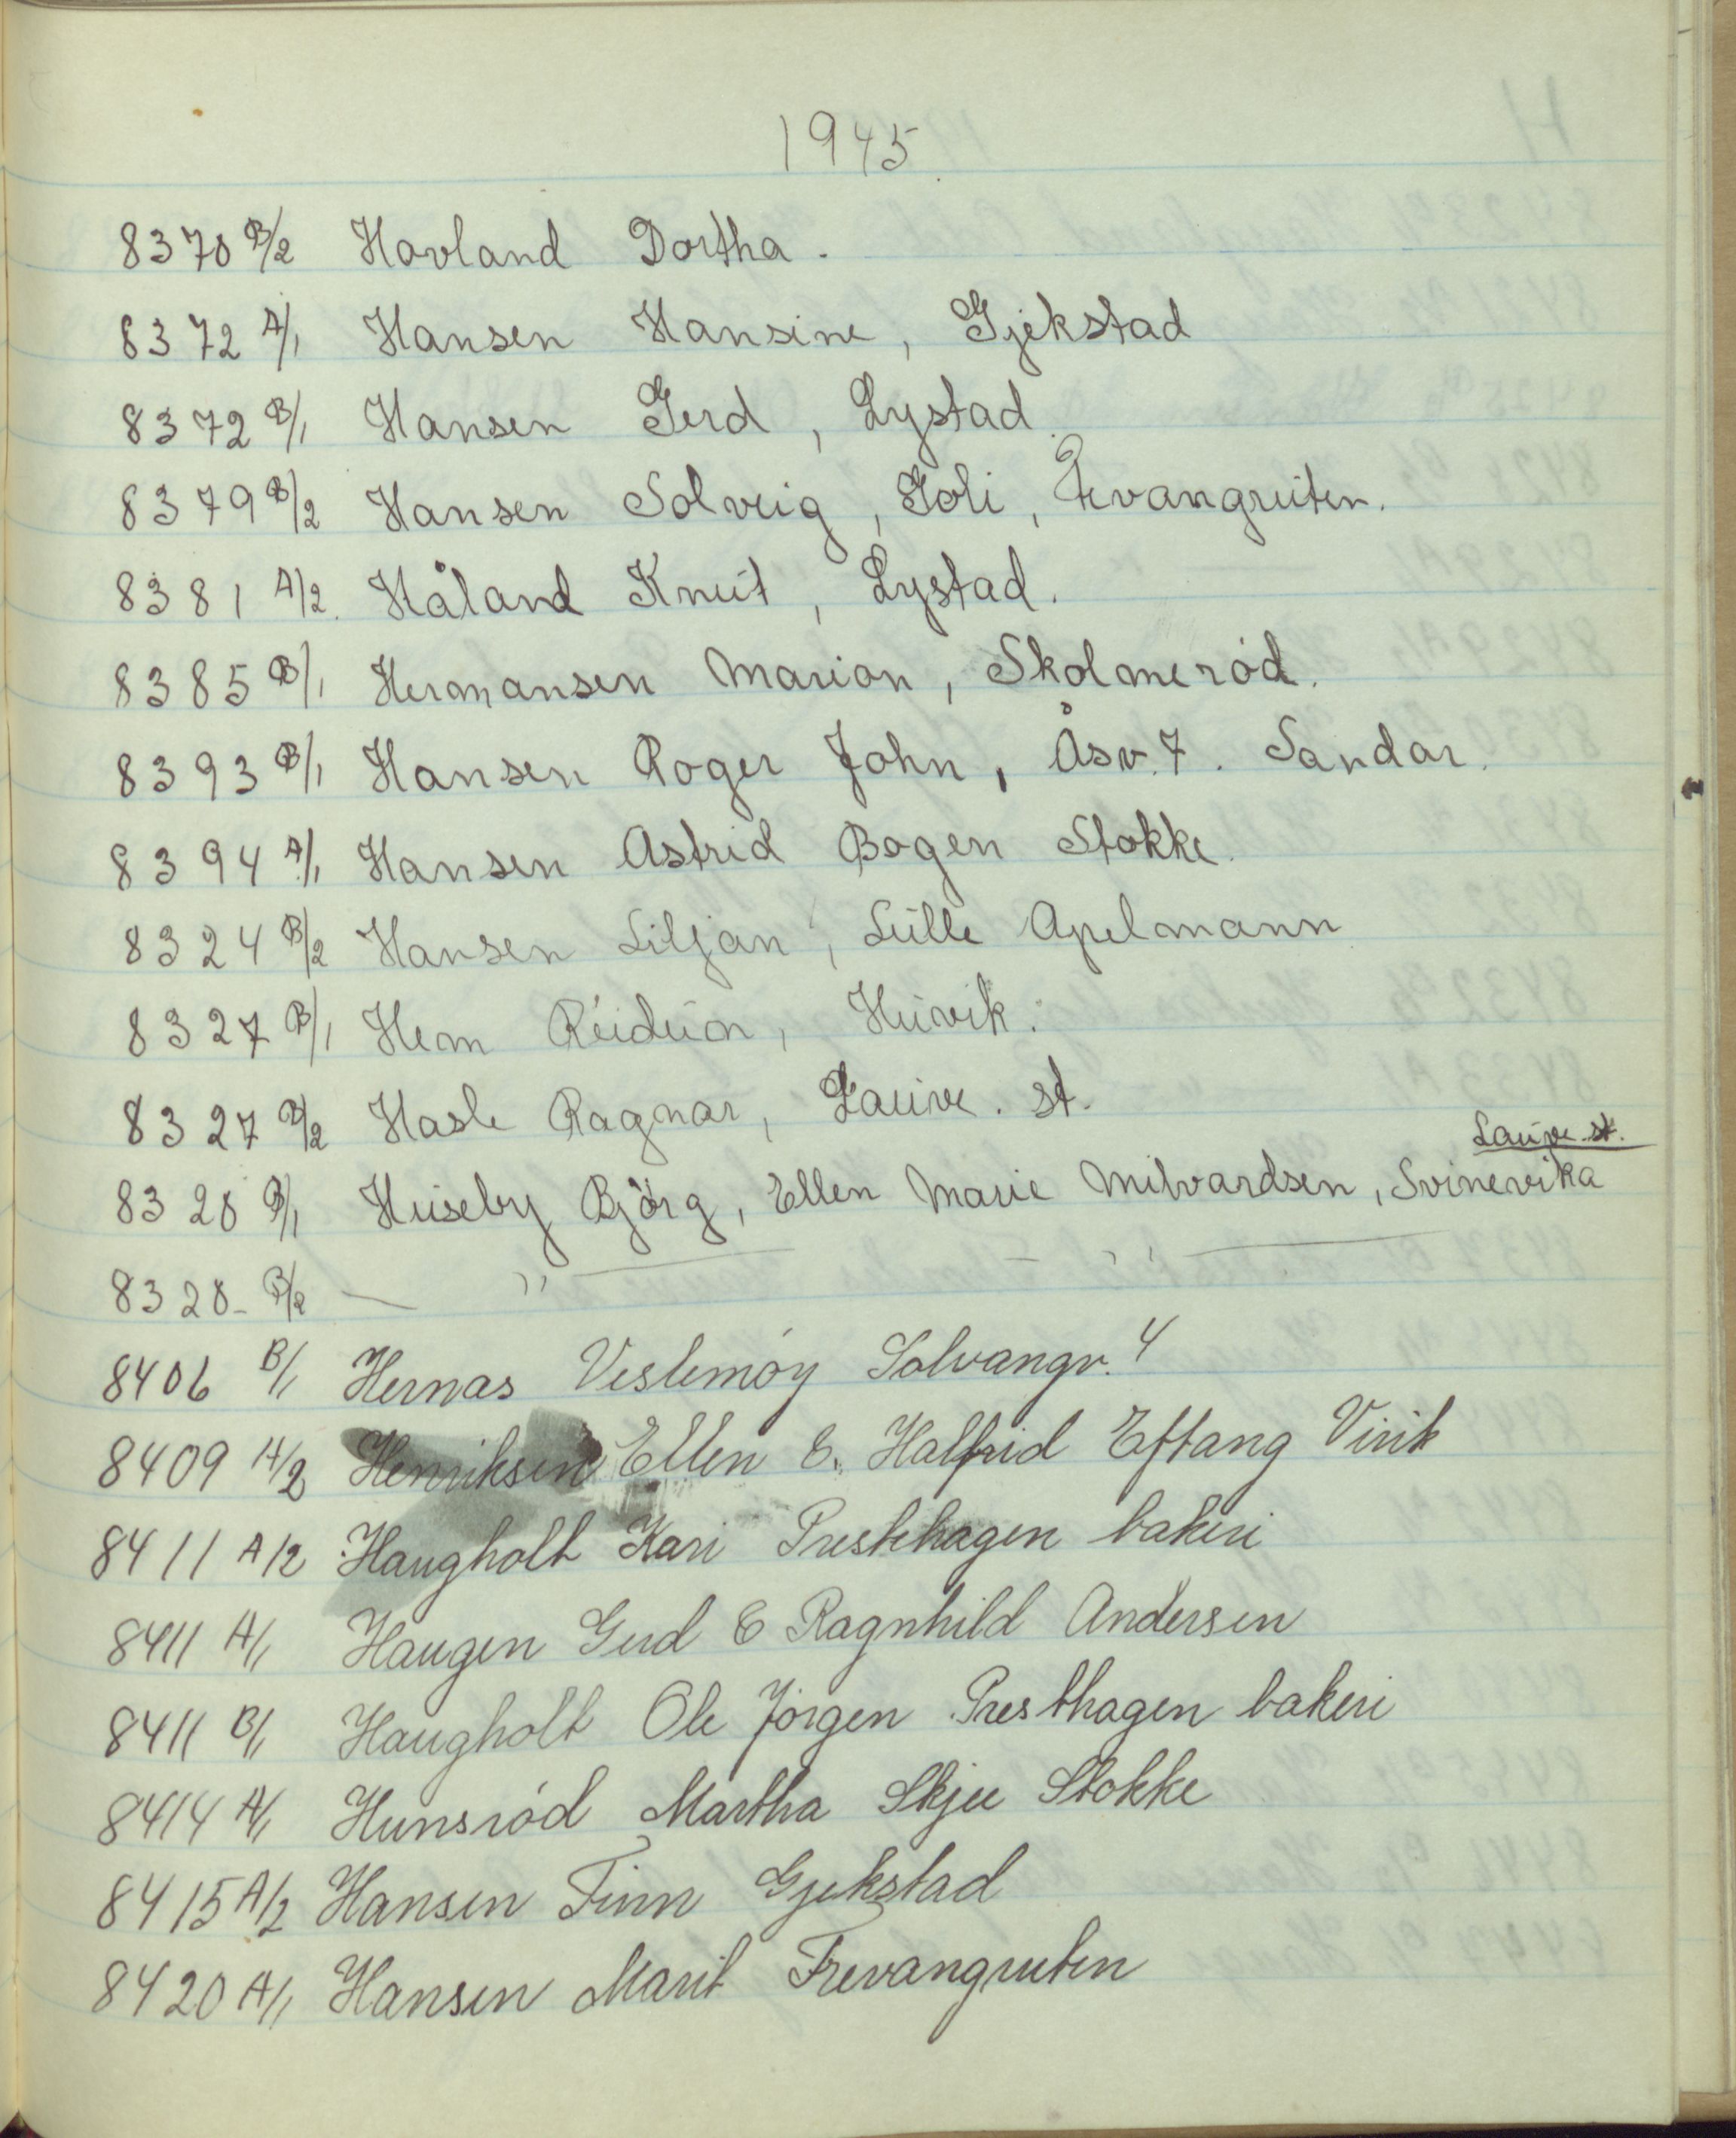 1945
8370 B/2 Havland Dortha.
8372 A/1 Hansen Hansine, Gjekstad
8372 B/1 Hansen Gerd, Lystad
8379 B/2 Hansen Solveig, Soli, Frevangruten.
8381 A/2. Håland Knut, Lystad.
8385 B/1 Hermansen Marion, Skolmeröd.
8393 B/1 Hansen Roger John, Åsv. 7. Sandar.
8394 A/1 Hansen Astrid Bogen Stokke.
8324 B/2 Hansen Liljan, Lülle Apelmann
8327 B/1 Hem Reidun, Huvik.
8327 B/2 Hasle Ragnar, Lauve. st.
Lauve st.
8328 B/1 Huseby Björg, Ellen Marie Milvardsen, Svinevika
8328- B/2 — " — — " —
8406 B/1 Hernas Veslemöy Solvangv. 4
8409 A/2 Henriksen Ellen E. Halfrid Eftang Virik
8411 A/2 Haugholt Kari Prestehagen bakeri
8411 A/1 Haugen Gerd E Ragnhild Andersen
8411 B/1 Haugholt Ole Jörgen Presthagen bakeri
8414 A/1 Hunsröd Martha Skjee Stokke
8415 A/2 Hansen Finn Gjekstad
8420 A/1 Hansen Marit Frevangruten